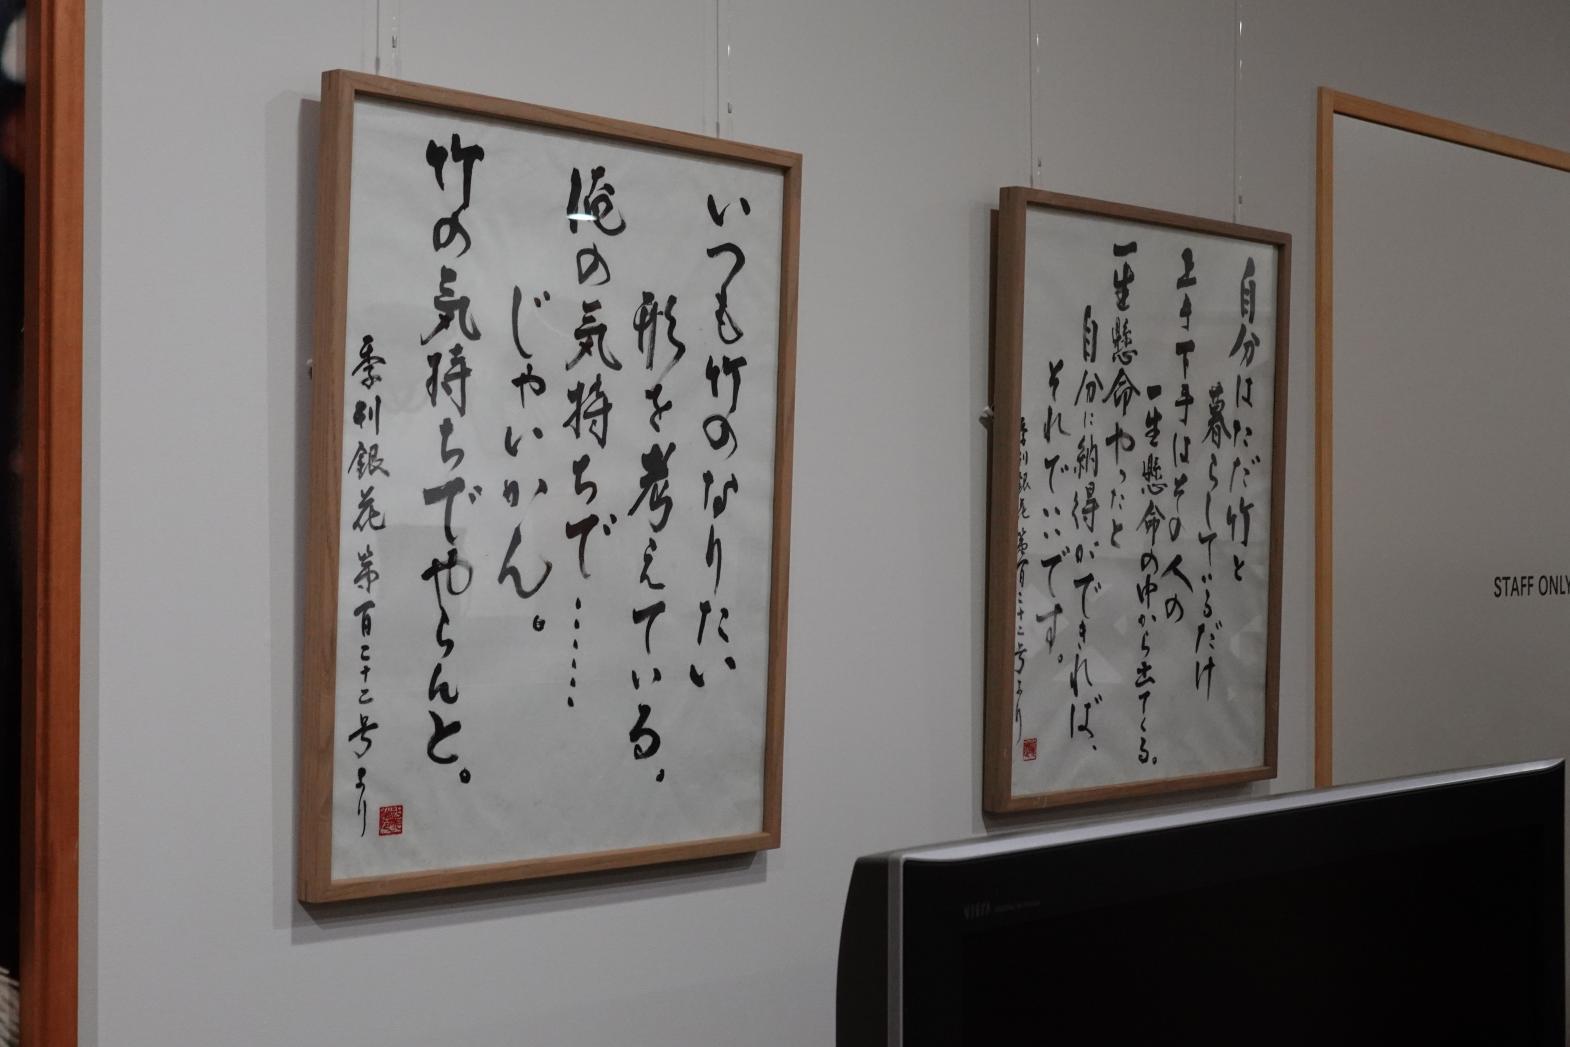 いつも竹のなりたい
形を考えている。
俺の気持ちで……
じゃいかん。
竹の気持ちでやらんと。
季刊銀花第百二十二号より
自分はただ竹と
暮らしているだけ
上手下手はその人の
一生懸命の中から出てくる。
一生懸命やったと
自分に納得ができれば、
それでいいです。
季刊銀花第百二十二号より
STAFF ONLY